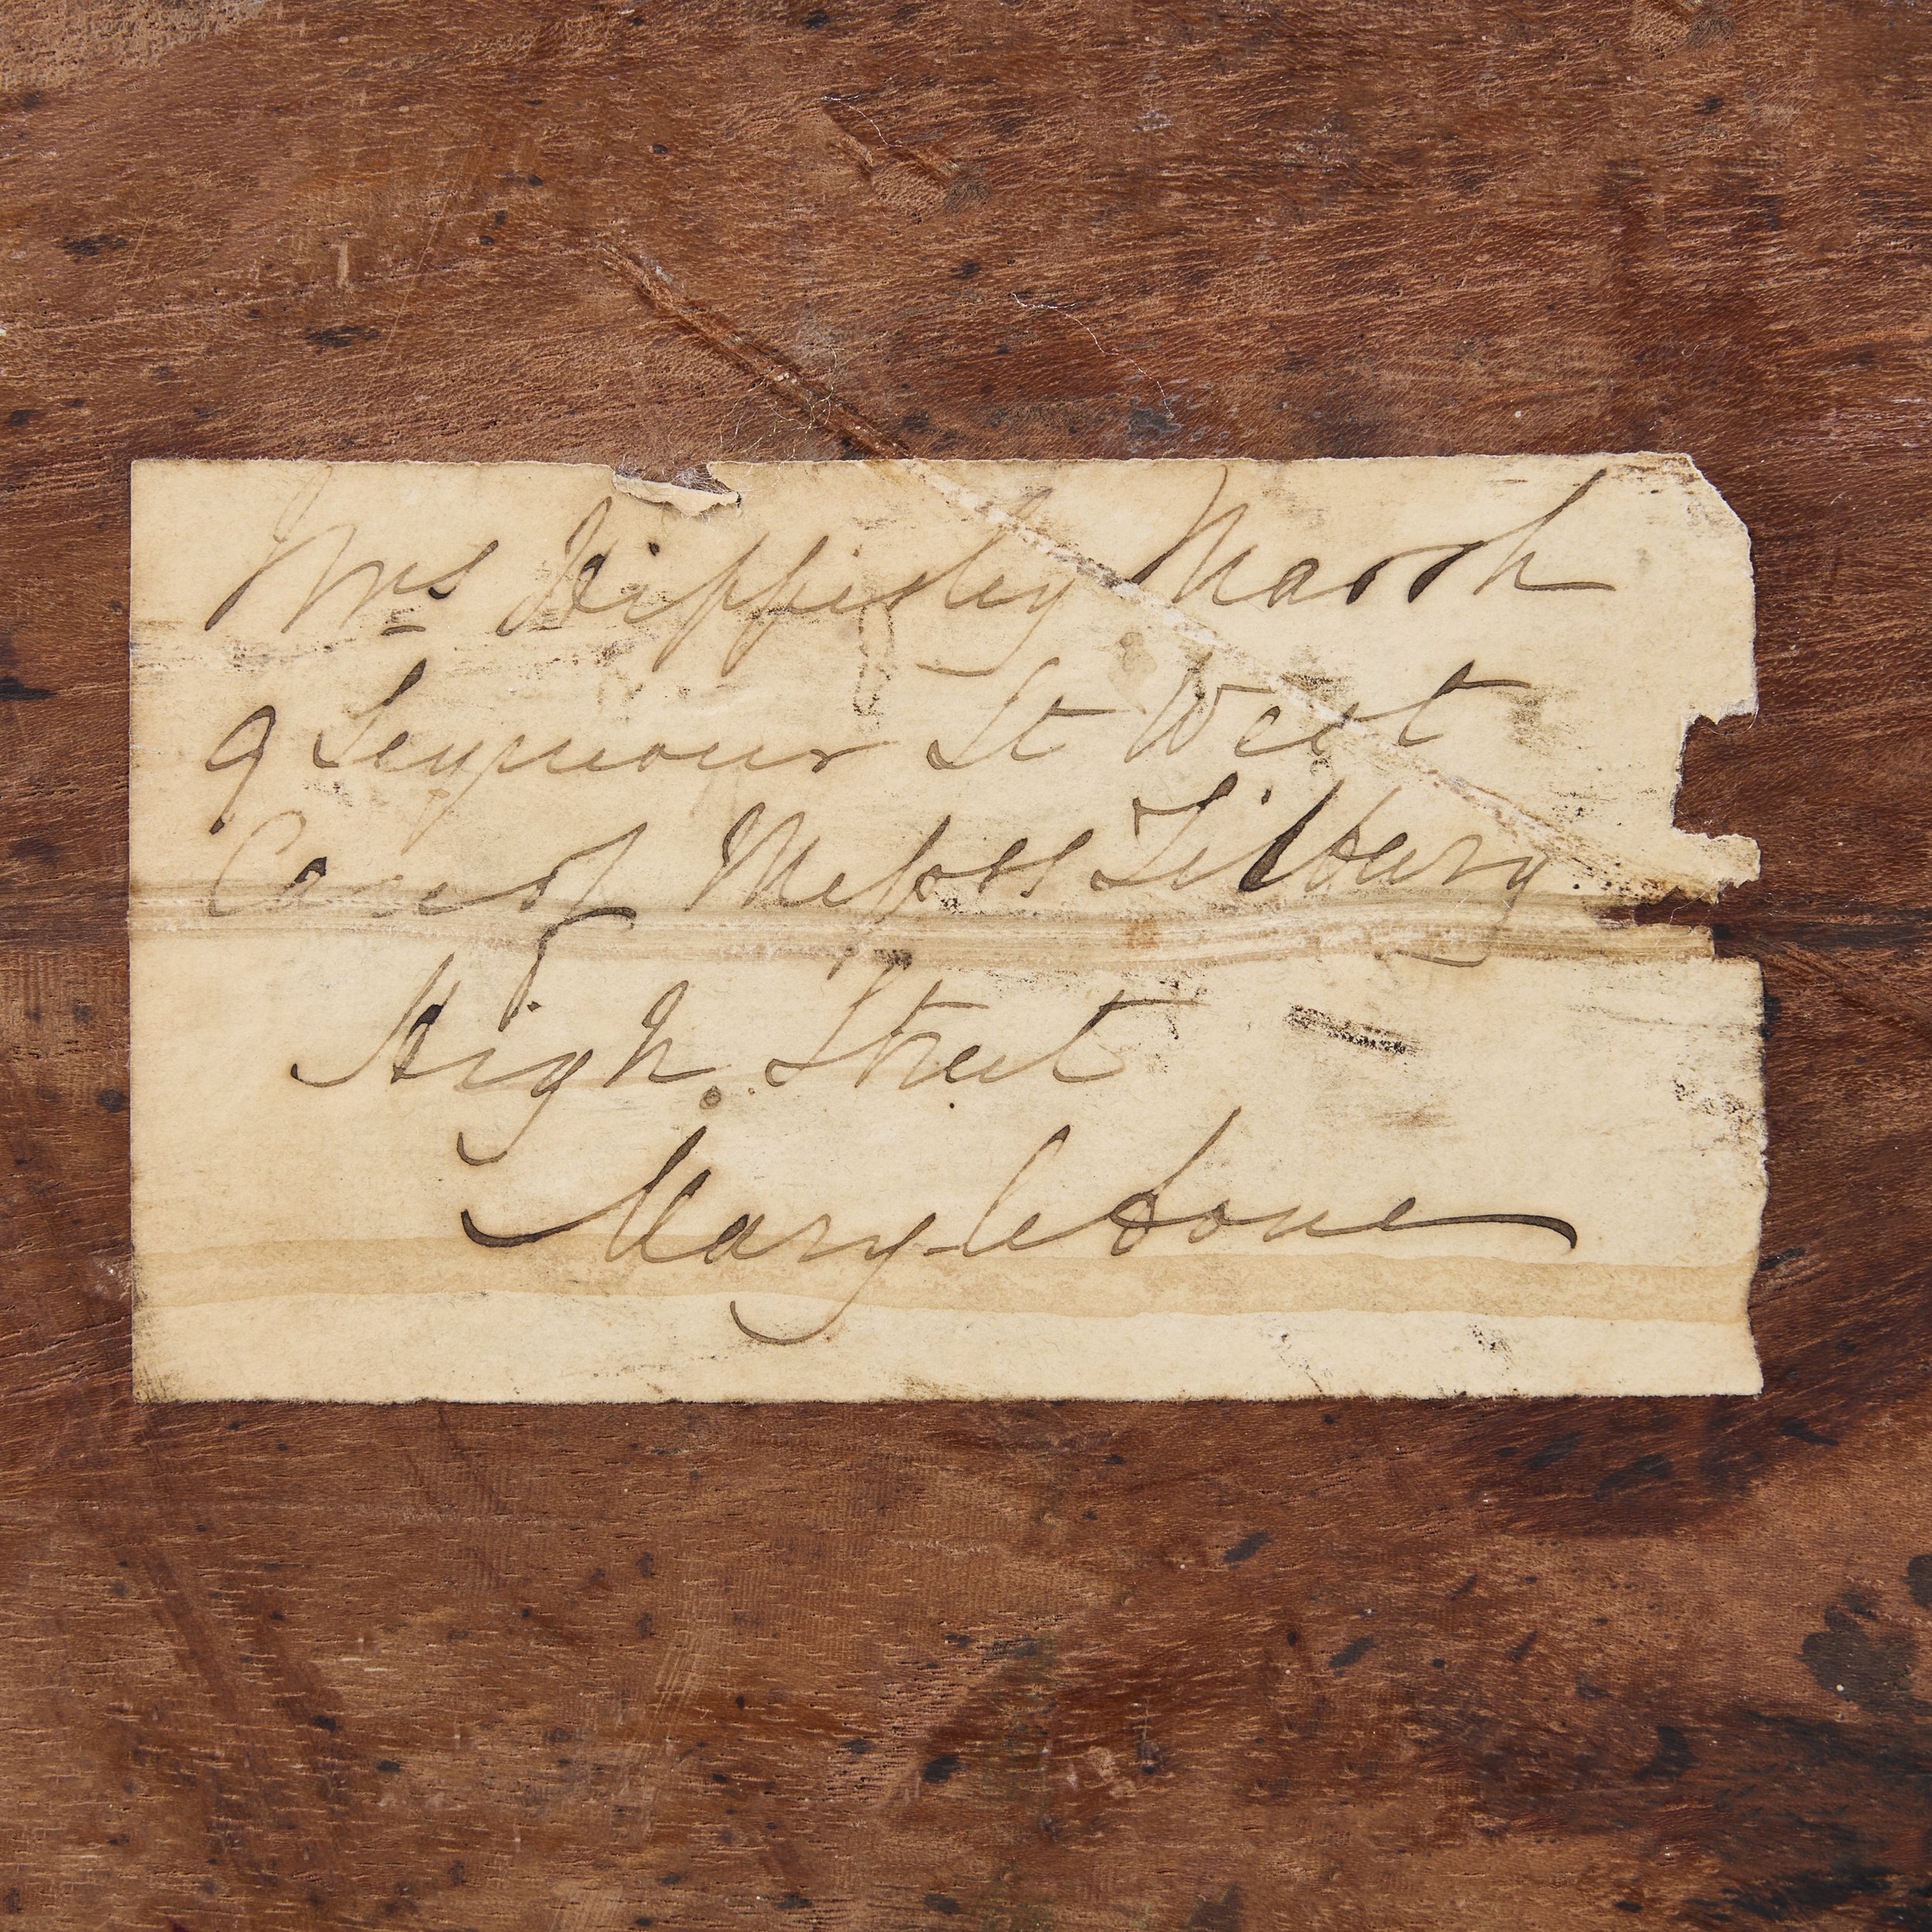 Mrs Hippisley Marsh
9 Seymour St West
Care of Messrs Tilbury
High Street
Mary-le-bone